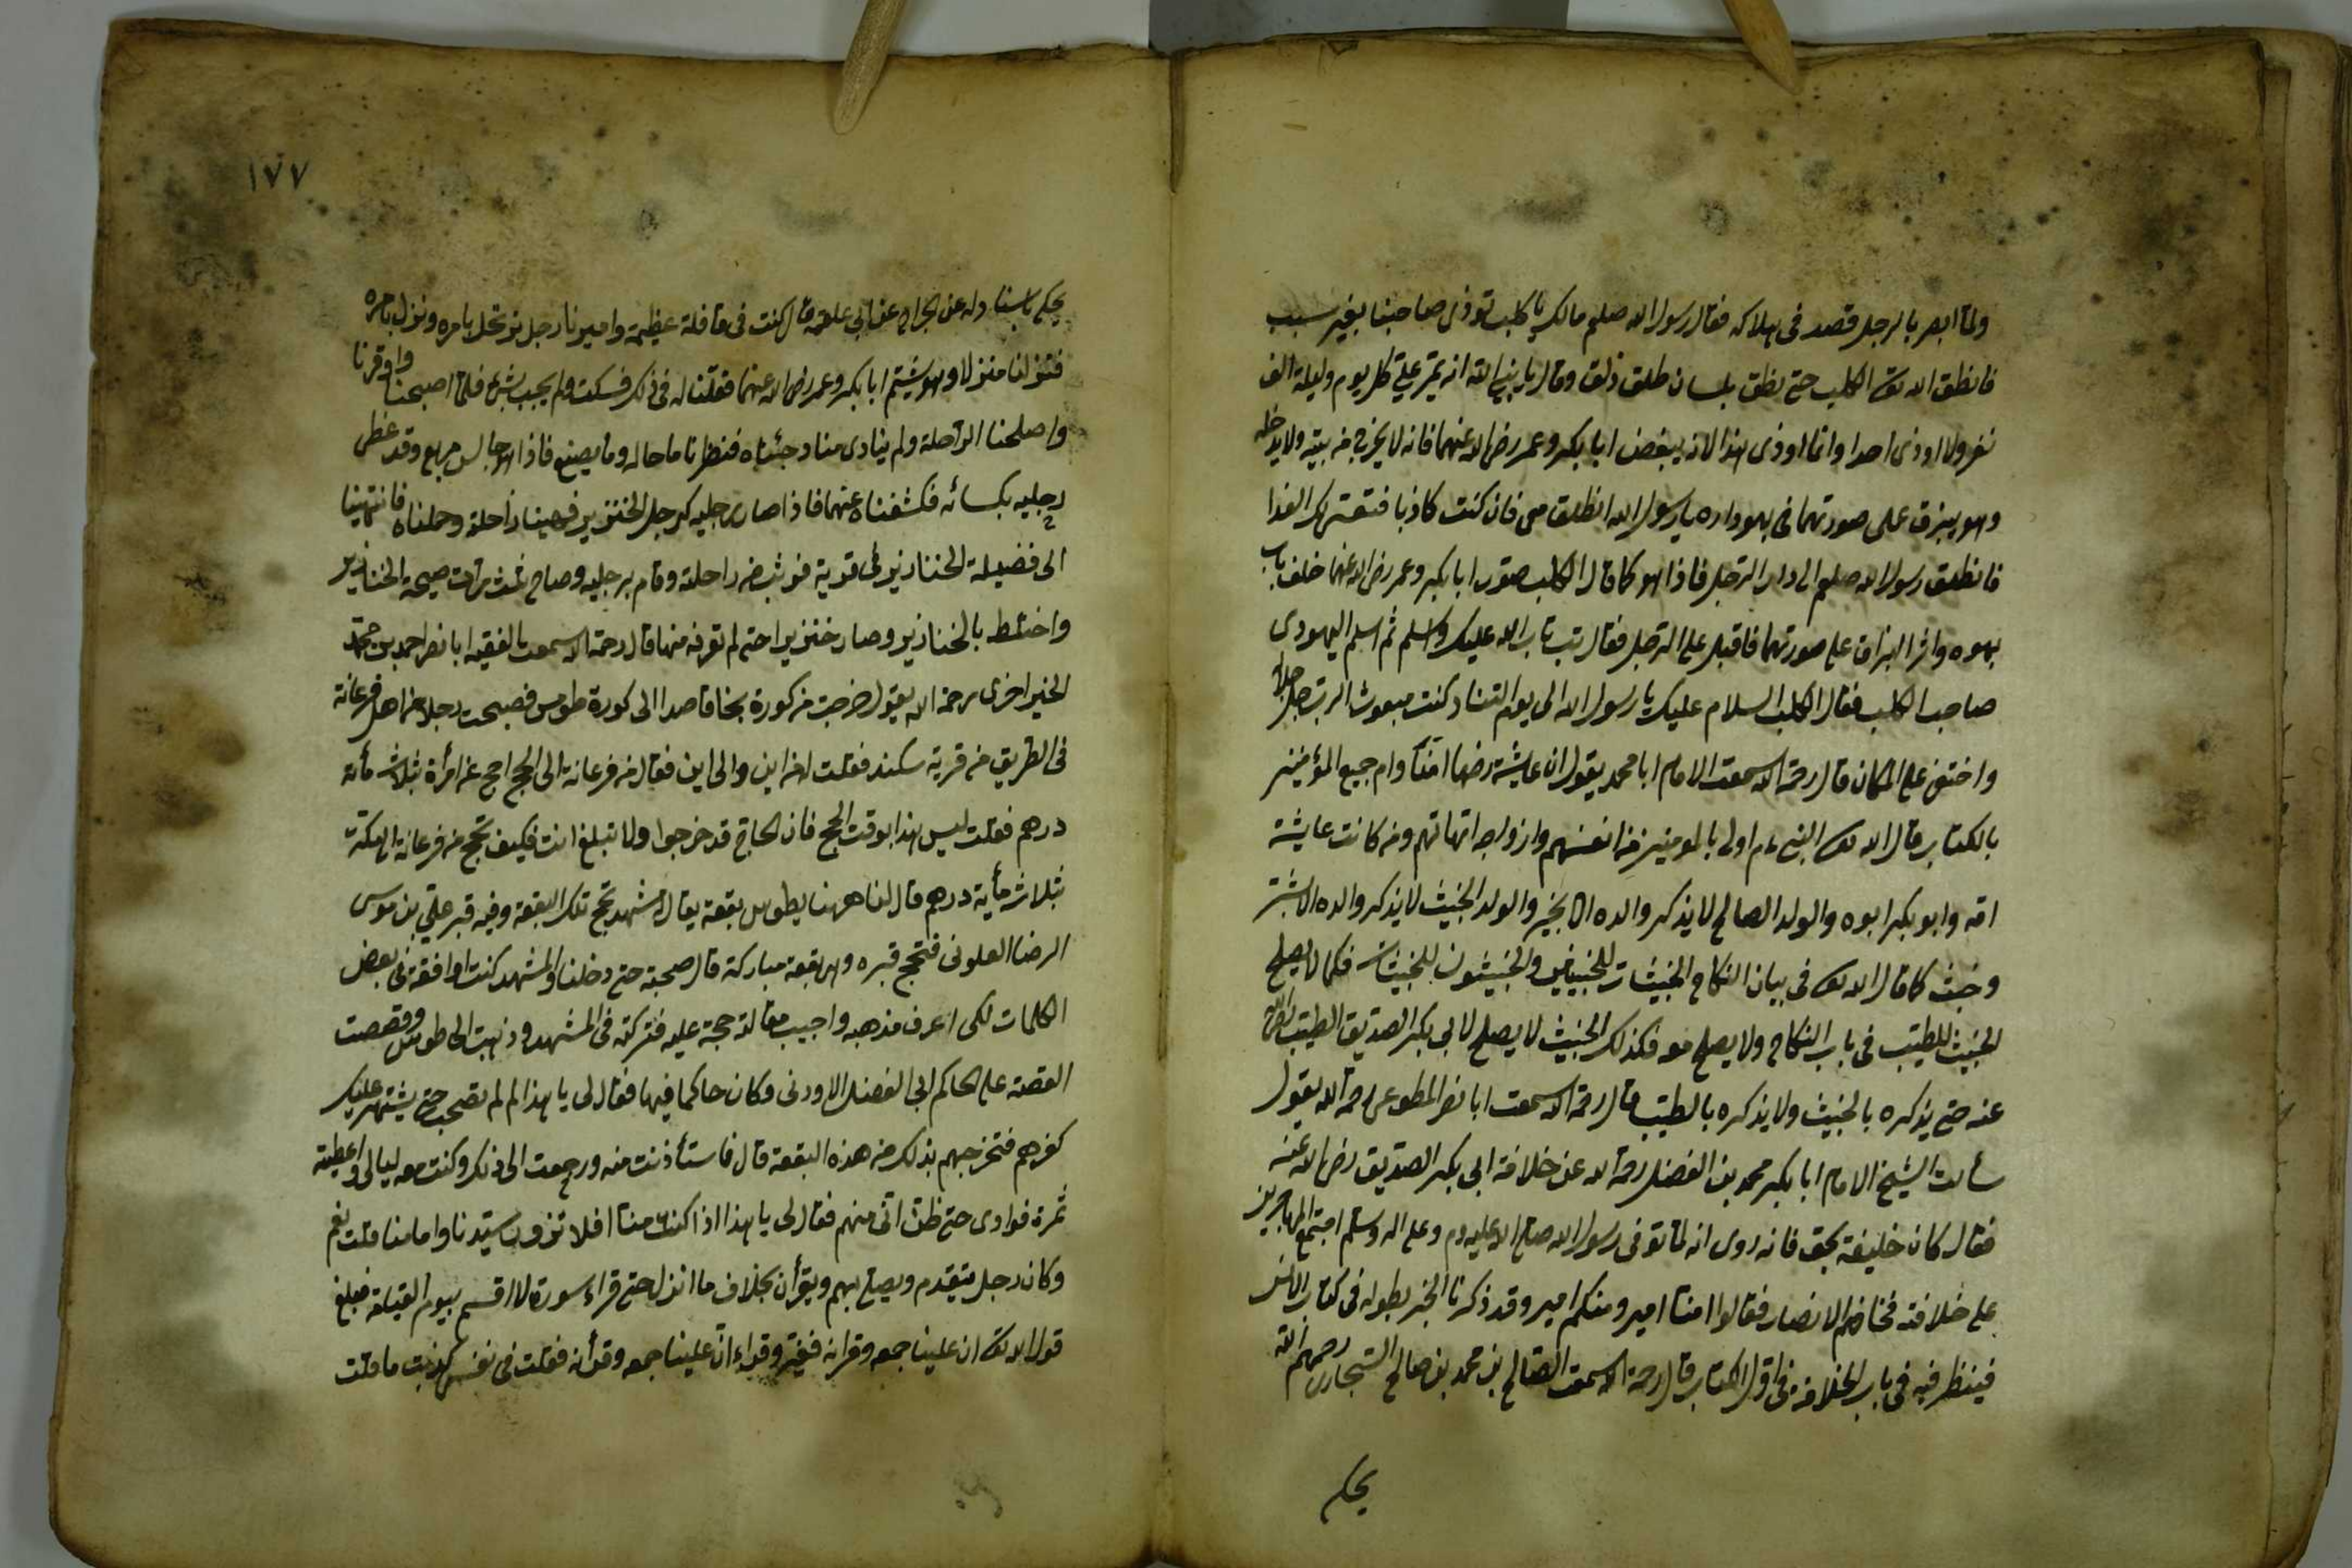 ولما ابصر بالرجل قصد فى هلاكه فقال رسول الله صلعم مالك يا كلب تؤذى صاحبنا بغير سبب
فانطق الله تع الكلب حتى نطق بلسان طلق ذلق وقال يا نبى الله انه يمر على كل يوم وليلة الف
نفر ولا اوذى احدا وانما اوذى هذا لانه يبغض ابا بكر وعمر رضى الله عنهما فانه لا يخرج من بيته ولا يدخله
وهو يبزق على صورتهما فى بهو داره يا رسول الله انطلق معى فان كنت كاذبا
فانطلق رسول الله صلعم الى دار الرجل فاذا هو كما قال الكلب صور ابا بكر وعمر رضى الله عنهما خلف باب
بهوه واثر البزاق على صورتهما فاقبل على الرجل فقال تب تاب الله عليك واسلم ثم اسلم اليهودى
صاحب الكلب فقال الكلب السلام عليك يا رسول الله الى يوم التناد كنت مبعوث الرب جل جلاله
واختفى على المكان قال رحمة الله سمعت الامام ابا محمد يقول ان عايشة رضها امنا وام جميع المؤمنين
بالكتاب قال الله تع النبى ءم اولى بالمومنين من انفسهم وازواجه امهاتهم ومن كانت عايشة
امه وابو بكر ابوه والولد الصالح لا يذكر والده الا بخير والولد الخبيث لا يذكر والده الا بشر
وخبث كما قال الله تع فى بيان النكاح الخبيثات للخبيثين والخبيثون للخبيثات فكما لا يصلح
الخبيث للطيب فى باب النكاح ولا يصلح معه فكذلك الخبيث لا يصلح لابى بكر الصديق الطيب رضى الله
عنه حتى يذكره بالخبيث ولا يذكره بالطيب قال رحمة الله سمعت ابا نصر المطوعى رحمة الله يقول
سألت الشيخ الامام ابا بكر محمد بن الفضل رحمة الله عن خلافة ابى بكر الصديق رضى الله عنه
فقال كان خليفة بحق فانه روى انه لما توفى رسول الله صلى الله عليه وم وعلى اله وسلم اجتمع المهاجرين
على خلافته فخاصم الانصار فقالوا منا امير ومنكم امير وقد ذكرنا الخبر بطوله فى كتاب الانس
فينظر فيه فى باب الخلافة فى اول الكتاب قال رحمة الله سمعت الصالح بن محمد بن صالح السنجارى رحمهم الله
يحكى
١٧٧
يحكى باسناد له عن عن ابى علقمة قال كنت فى قافلة عظيمة واميرنا رجل نرتحل بامره وننزل بامره
فنزلنا منزلا وهو يشتم ابا بكر وعمر رضى الله عنهما فقلنا له فى ذلك فسكت ولم يجب بشئ فلما اصبحنا واوقرنا
واصلحنا الراحلة ولم ينادى منادي جئناه فنظرنا ما حاله وما يصنع فاذا هو جالس مربع وقد غطى
رجليه بكسائه فكشفناه عنهما فاذا صار رجليه كرجل الخنزير فهينا راحلة وحملناه فانتهينا
الى فضيلة الخنازير فى قرية فوثب من راحلته وقام برجليه وصاح ثلث مرات صيحة الخنازير
واختلط بالخنازير وصار خنزيرا حتى لم نعرفه منها قال رحمة الله سمعت الفقيه ابا نصر احمد بن محمد
رحمة الله يقول خرجت من كورة بخا قاصدا الى كورة طوس فصحبت رجلا من اهل فرغانة
فى الطريق من قرية سكند فقلت له من اين والى اين فقال من فرغانة الى الحج احج عن امرأة بثلاث مأة
درهم فقلت ليس هذا بوقت الحج فان الحاج قد خرجوا ولا تبلغ انت فكيف تحج من فرغانة الى مكة
بثلاث مأية درهم قال لنا ههنا بطوس بقعة يقال مشهد نحج تلك البقعة وفيه قبر على بن موسى
الرضا العلوى فنحج قبره وهى بقعة مباركة قال صحبته حتى دخلنا المشهد كنت اوافقه فى بعض
الكلمات لكى اعرف مذهبه واجيب مقالته حجة عليه فتركته فى المشهد وذهبت الى طوس وقصصت
القصة على الحاكم ابى الفضل الاودنى وكان حاكما فيها فقال لى يا هذا لم لم تصحب حتى يشتهر عليك
كفرهم فتخرجهم بذلك من هذه البقعة قال فاستأذنت منه ورجعت الى ذلك وكنت معه ليالى واعطيته
ثمرة فوادى حتى ظن انى منهم فقال لى يا هذا اذا كنت منا افلا تزور سيدنا وامامنا قلت نعم
وكان رجل يتقدم ويصلى بهم ويقرأن بخلاف ما انزل حتى قراء سورة لا اقسم بيوم القيامة فبلغ
قول الله تع ان علينا جمعه وقرانه فغير وقراء ان علينا جمعه وقرأنه فقلت فى نفسى كذبت ما قلت